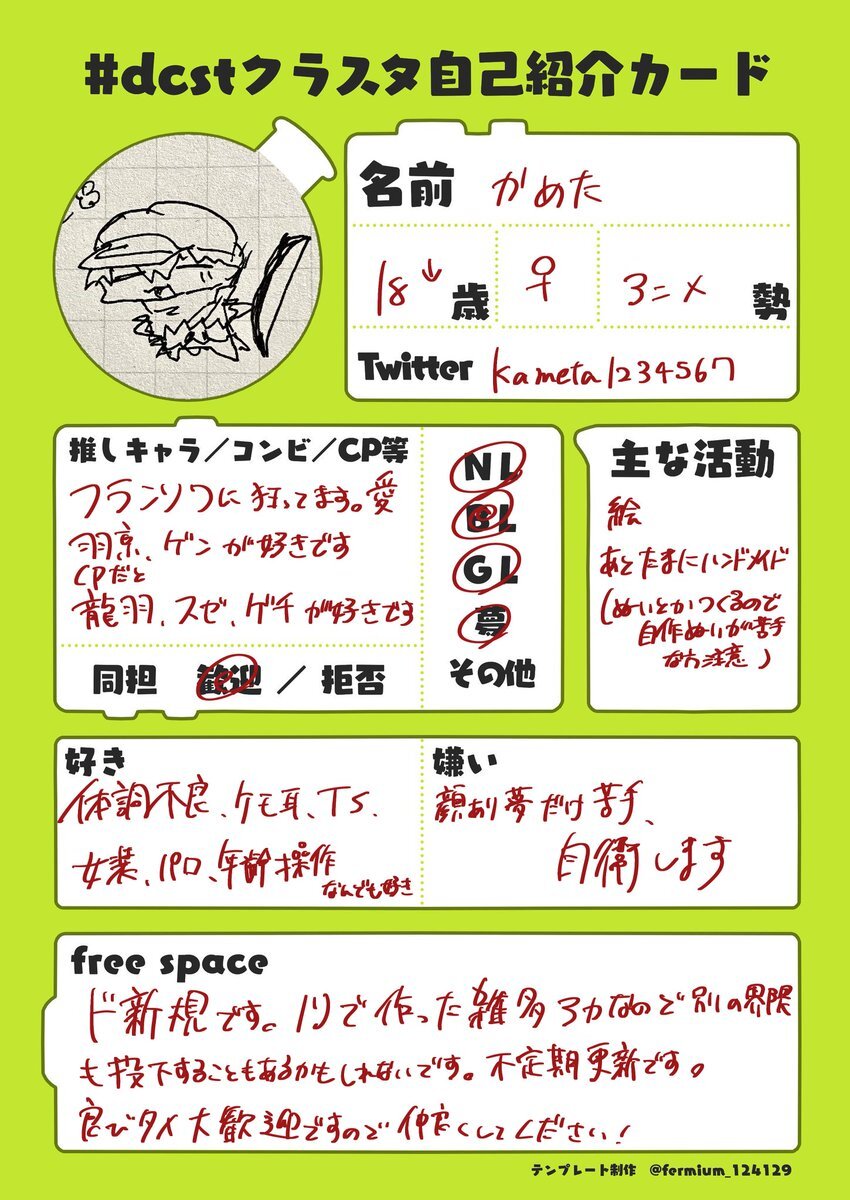 #dcstクラスタ自己紹介カード
名前 かめた
18↓歳 ♀ アニメ 勢
Twitter kameta1234567
推しキャラ/コンビ/CP等
フランソワに狂ってます。愛
羽京、ゲンが好きです
CPだと
龍羽、スゼ、ゲチが好きです
同担 歓迎 / 拒否
NL
BL
GL
夢
その他
主な活動
絵
あとたまにハンドメイド
(ぬいとかつくるので
自作ぬいが苦手
な方注意)
好き
体調不良、ケモ耳、TS、
女装、パロ、年齢操作
なんでも好き
嫌い
顔あり夢だけ苦手、
自衛します
free space
ド新規です。ノリで作った雑多アカなので別の界隈
も投下することもあるかもしれないです。不定期更新です。
良びタメ大歓迎ですので仲良くしてください!
テンプレート制作 @fermium_124129